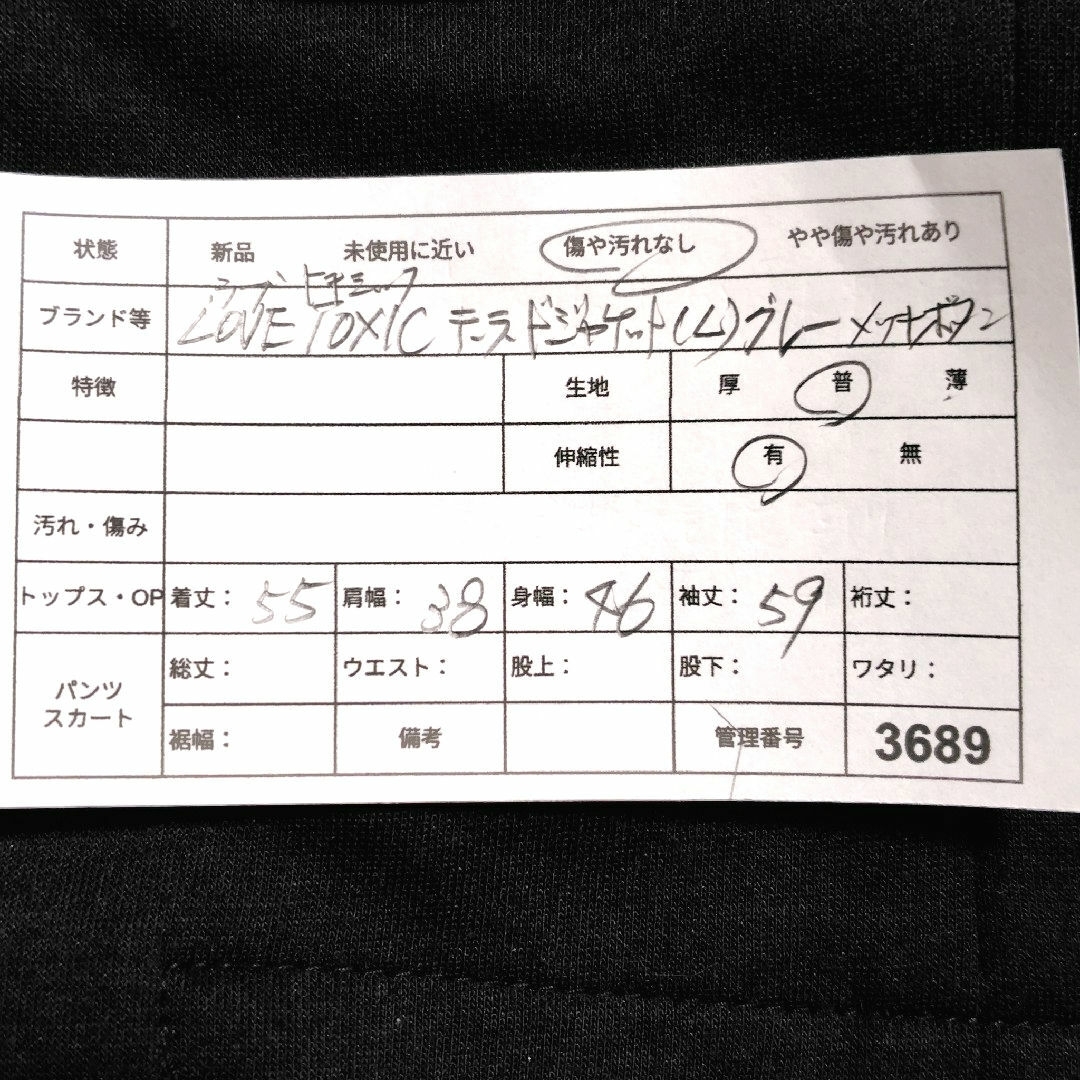 状態 新品 未使用に近い 傷や汚れなし やや傷や汚れあり
ラーブ トキシック
ブランド等 LOVE TOXIC テーラードジャケット(L)グレー メッキボタン
特徴 生地 厚 普 薄
伸縮性 有 無
汚れ・傷み
トップス・OP 着丈： 55 肩幅： 38 身幅： 46 袖丈： 59 裄丈：
パンツ
スカート
総丈： ウエスト： 股上： 股下： ワタリ：
裾幅： 備考 管理番号 3689